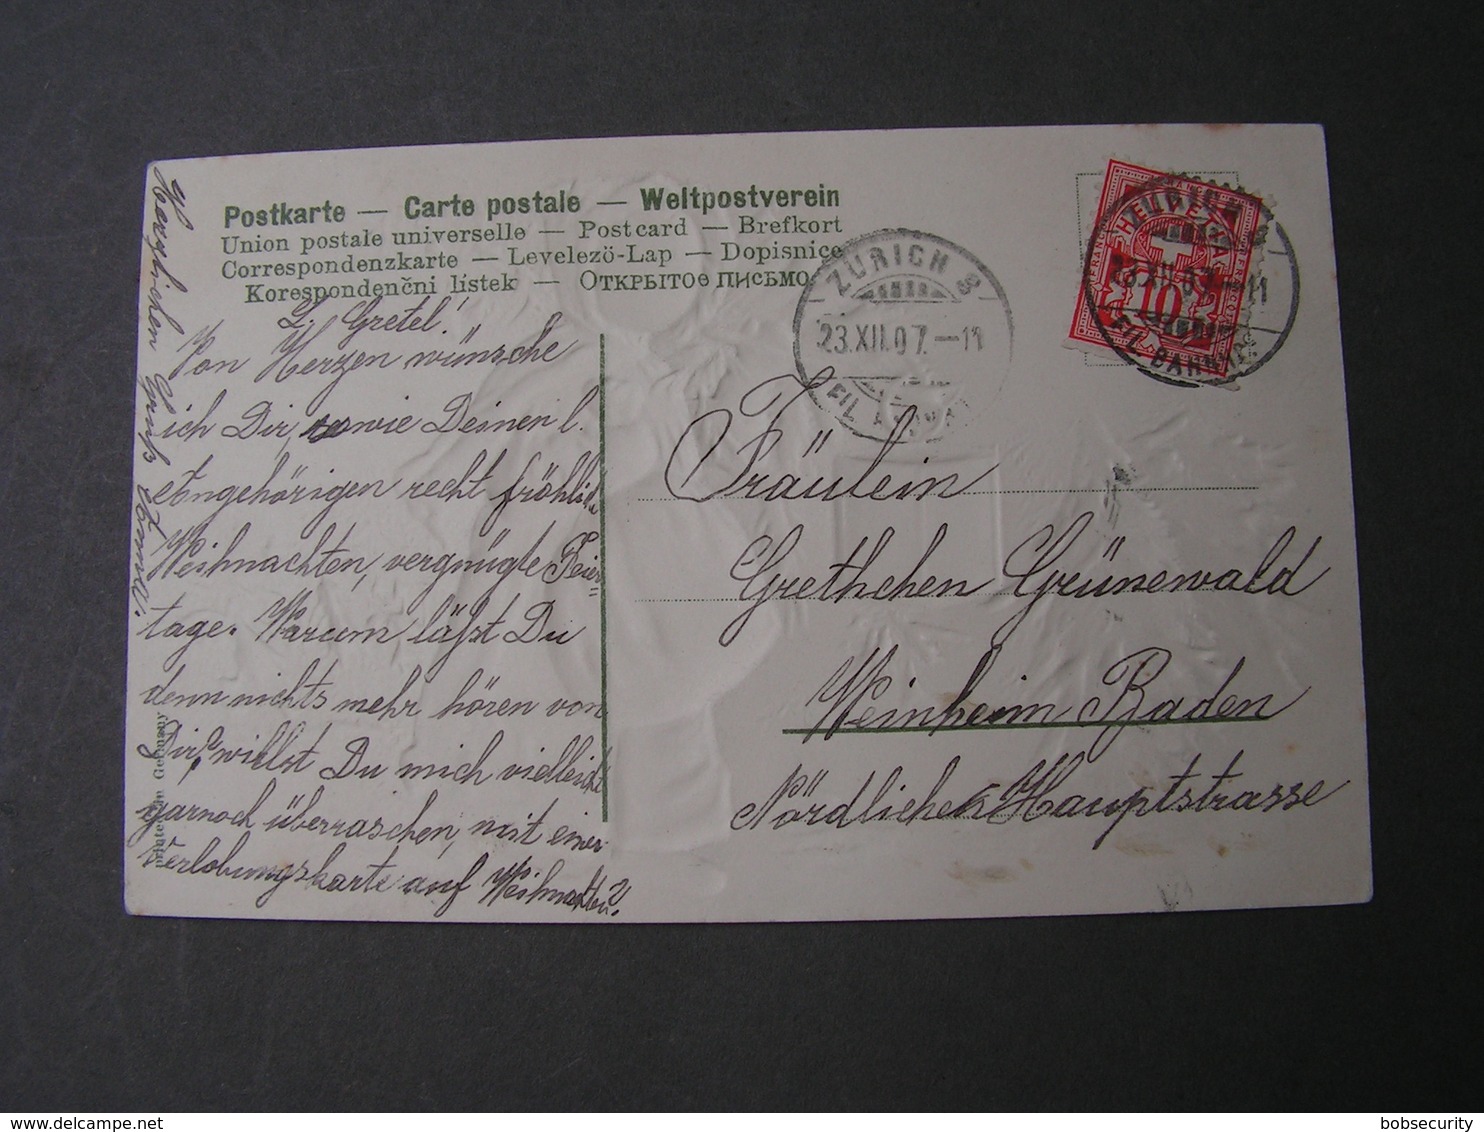 Postkarte — Carte postale — Weltpostverein
Union postale universelle — Postcard — Brefkort
Correspondenzkarte — Levelezö-Lap — Dopisnice
Korespondenčni listek — Открытое письмо.
L. Gretel!
Von Herzen wünsche
ich Dir, sowie Deinen l.
Angehörigen recht fröhlich
Weihnachten, vergnügte Feier=
tage. Warum läßt Du
denn nichts mehr hören von
Dir, willst Du mich vielleicht
garnoch überraschen, mit einer
Verlobungskarte auf Weihnachten?
Herzlichen Gruß
Printed in Germany
ZÜRICH 8
23.XII.07.-11
FIL.
HELVETIA
FRANCO
10
23.XII.07.-11
BAHNHOF
Fräulein
Grethchen Grünewald
Weinheim Baden
Nördlichen Hauptstrasse
bobsecurity